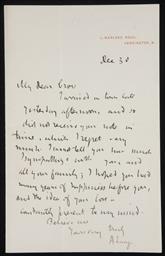 1, MARLOES ROAD,
KENSINGTON, W.
Dec 30
My dear Crow
I arrived in town late
yesterday afternoon, and so
did not receive your note in
time, which I regret very
much. I need tell you how much
I sympathise with you and
all your family; I hoped you had
many years of happiness before you,
and the idea of your loss is
constantly present to my mind.
Believe me
Yours very truly
A Lang